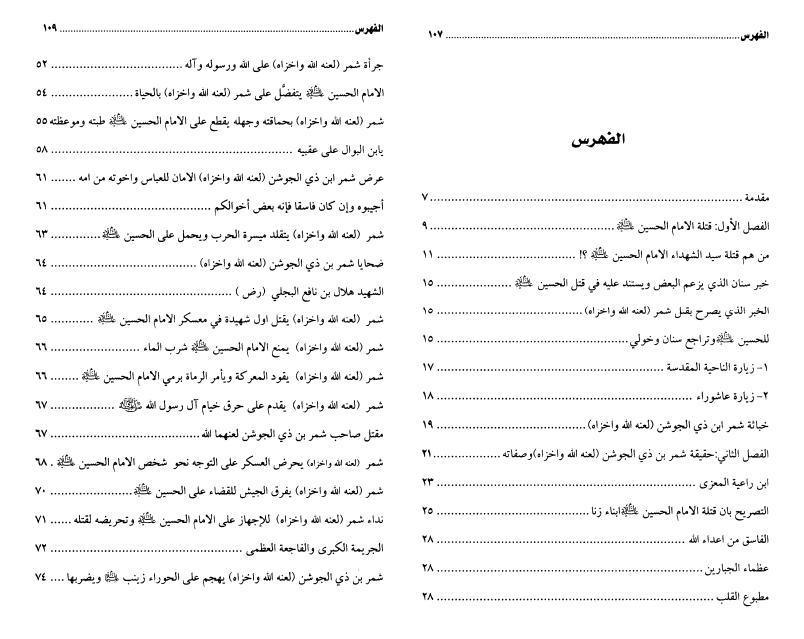 الفهرس ........ ١٠٧
الفهرس
مقدمة ........ ٧
الفصل الأول: قتلة الامام الحسين ﵇ ........ ٩
من هم قتلة سيد الشهداء الامام الحسين ﵇ ؟! ........ ١١
خبر سنان الذي يزعم البعض ويستند عليه في قتل الحسين ﵇ ........ ١٥
الخبر الذي يصرح بقتل شمر (لعنه الله واخزاه) ........ ١٥
للحسين ﵇ وتراجع سنان وخولي ........ ١٥
١- زيارة الناحية المقدسة ........ ١٧
٢- زيارة عاشوراء ........ ١٨
خباثة شمر ابن ذي الجوشن (لعنه الله واخزاه) ........ ١٩
الفصل الثاني:حقيقة شمر بن ذي الجوشن (لعنه الله واخزاه)وصفاته ........ ٢١
ابن راعية المعزى ........ ٢٣
التصريح بان قتلة الامام الحسين ﵇ ابناء زنا ........ ٢٥
الفاسق من اعداء الله ........ ٢٨
عظماء الجبارين ........ ٢٨
مطبوع القلب ........ ٢٨
الفهرس ........ ١٠٩
جرأة شمر (لعنه الله واخزاه) على الله ورسوله وآله ........ ٥٢
الامام الحسين ﵇ يتفضَّل على شمر (لعنه الله واخزاه) بالحياة ........ ٥٤
شمر (لعنه الله واخزاه) بحماقته وجهله يقطع على الامام الحسين ﵇ طبته وموعظته ٥٥
يابن البوال على عقبيه ........ ٥٨
عرض شمر ابن ذي الجوشن (لعنه الله واخزاه) الامان للعباس واخوته من امه ........ ٦١
أجيبوه وإن كان فاسقا فإنه بعض أخوالكم ........ ٦١
شمر (لعنه الله واخزاه) يتقلد ميسرة الحرب ويحمل على الحسين ﵇ ........ ٦٣
ضحايا شمر بن ذي الجوشن (لعنه الله واخزاه) ........ ٦٤
الشهيد هلال بن نافع البجلي (رض) ........ ٦٤
شمر (لعنه الله واخزاه) يقتل اول شهيدة في معسكر الامام الحسين ﵇ ........ ٦٥
شمر (لعنه الله واخزاه) يمنع الامام الحسين ﵇ شرب الماء ........ ٦٦
شمر (لعنه الله واخزاه) يقود المعركة ويأمر الرماة برمي الامام الحسين ﵇ ........ ٦٦
شمر (لعنه الله واخزاه) يقدم على حرق خيام آل رسول الله ﷺ ........ ٦٧
مقتل صاحب شمر بن ذي الجوشن لعنهما لله ........ ٦٧
شمر (لعنه الله واخزاه) يحرض العسكر على التوجه نحو شخص الامام الحسين ﵇ . ٦٨
شمر (لعنه الله واخزاه) يفرق الجيش للقضاء على الحسين ﵇ ........ ٧٠
نداء شمر (لعنه الله واخزاه) للإجهاز على الامام الحسين ﵇ وتحريضه لقتله ...... ٧١
الجريمة الكبرى والفاجعة العظمى ........ ٧٢
شمر بن ذي الجوشن (لعنه الله واخزاه) يهجم على الحوراء زينب ﵍ ويضربها .... ٧٤